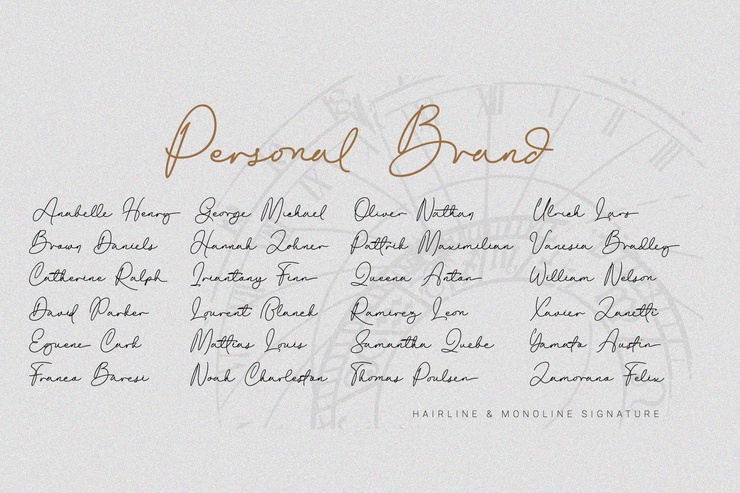 Personal Brand
Anabelle Henry George Michael Oliver Nathan Ulrich Lars
Brown Daniels Hannah Zohner Pattrik Maximilian Vanesia Bradley
Catherine Ralph Iriantony Finn Queena Antan William Nelson
David Parker Laurent Blanck Ramirez Leon Xavier Zanetti
Eguene Cark Mattias Louis Samantha Quebe Yamato Austin
Franco Baresi Noah Charleston Thomas Poulsen Zamorano Felix
HAIRLINE & MONOLINE SIGNATURE